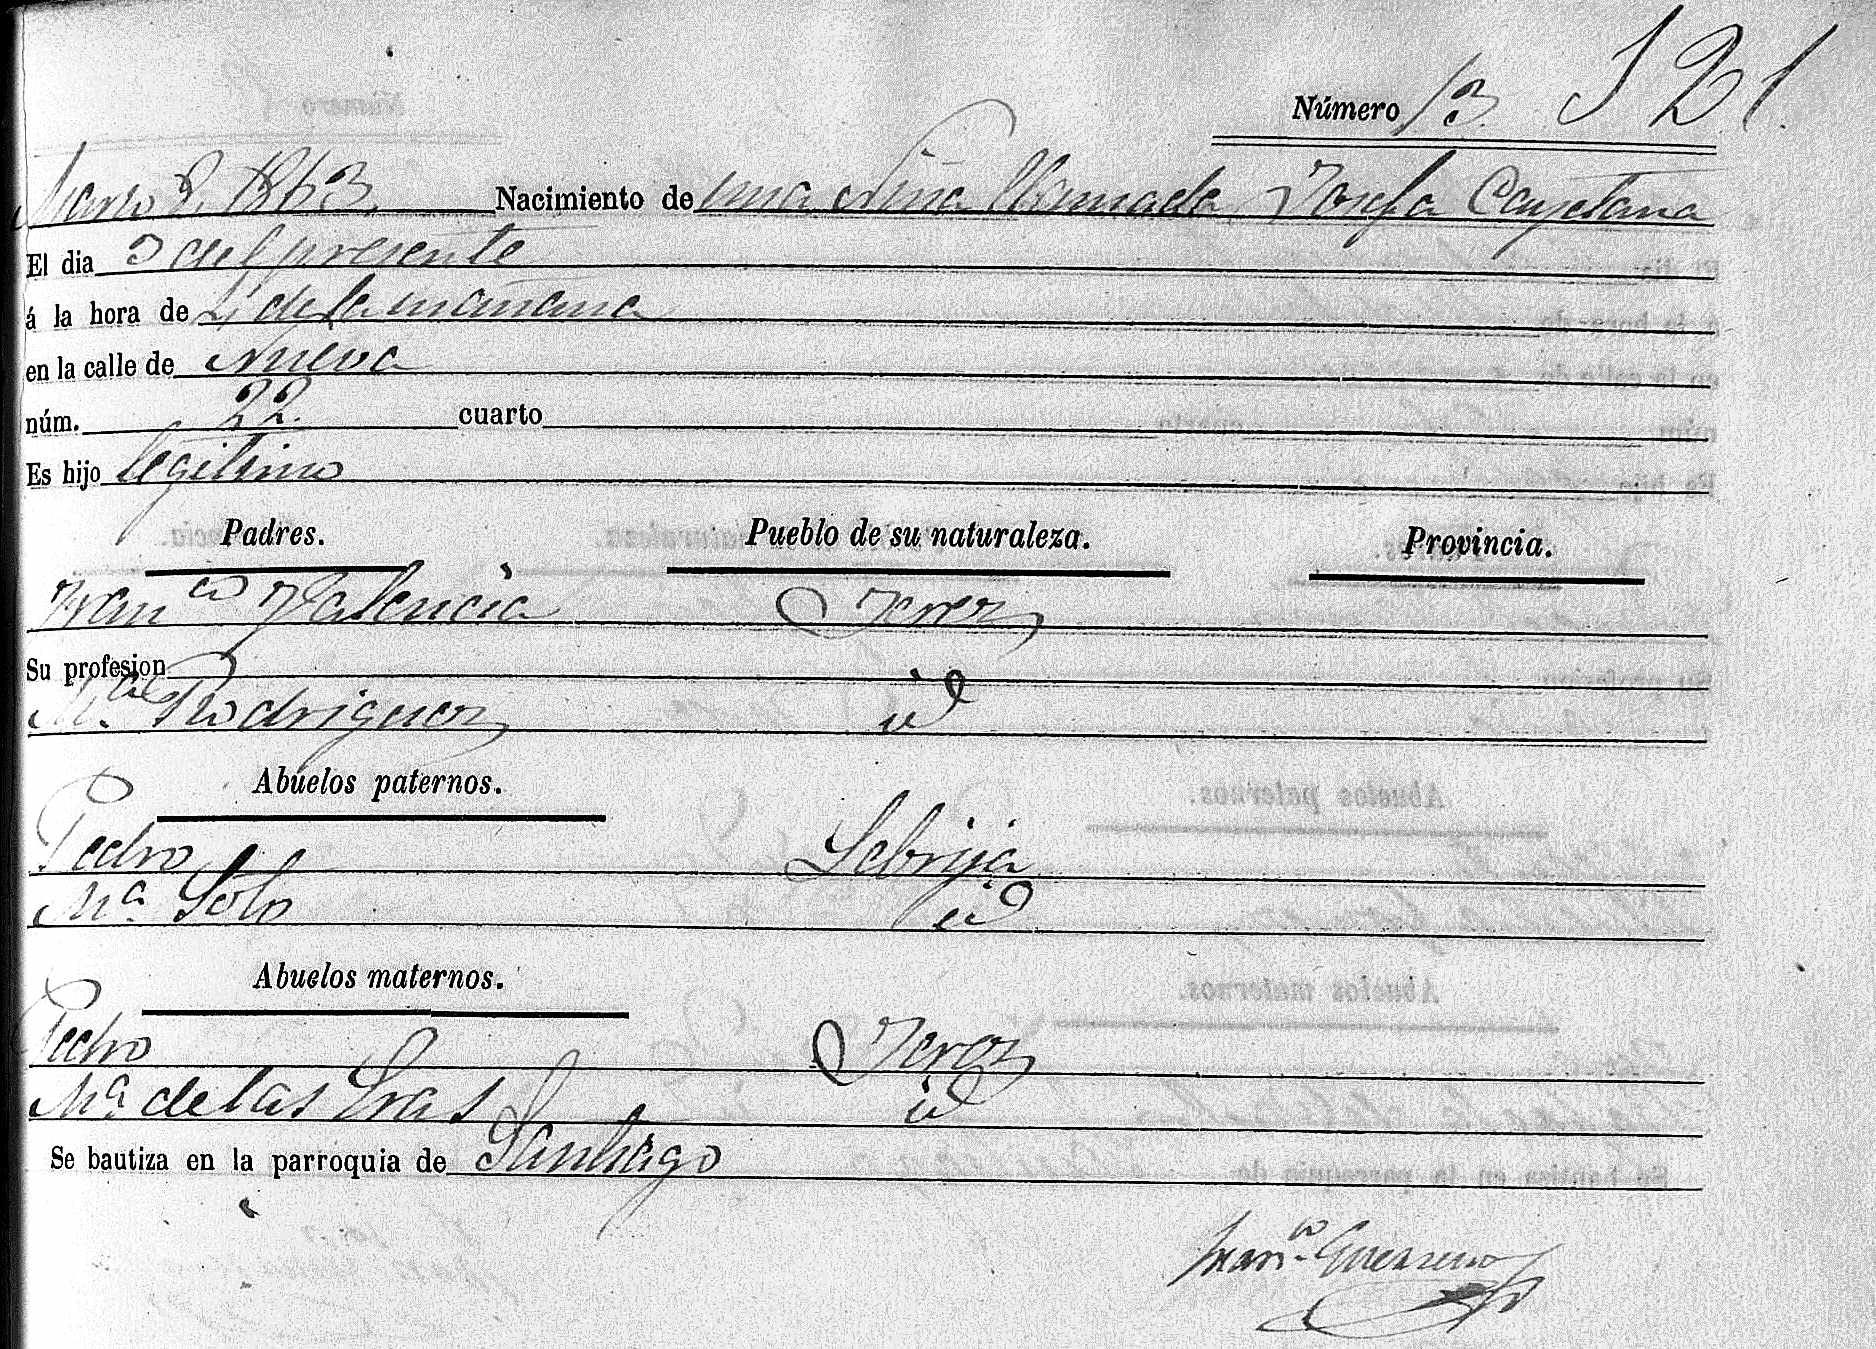 Número 13. 121.
Marzo 8. 1863. Nacimiento de una Niña llamada Josefa Cayetana
El dia 3 del presente
á la hora de 4 de la mañana
en la calle de Nueva
núm. 22. cuarto
Es hijo legitimo
Padres. Pueblo de su naturaleza. Provincia.
Franco Valencia Jerez
Su profesion
Ma Rodriguez id
Abuelos paternos.
Pedro Lebrija
Ma Soto id
Abuelos maternos.
Pedro Jerez
Ma de las Eras id
Se bautiza en la parroquia de Santiago
Guerrero